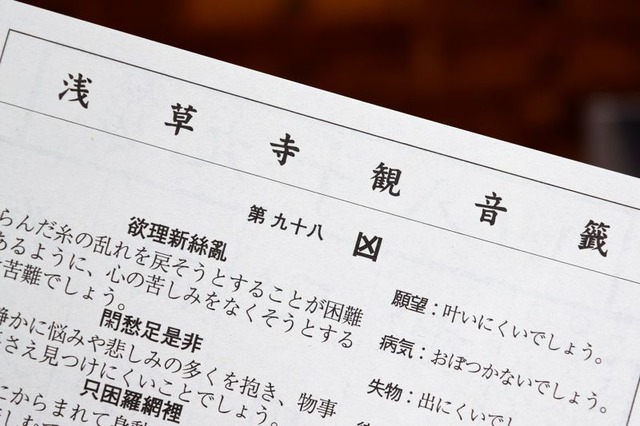 浅草寺観音籤
第九十八 凶
欲理新絲亂
らんだ糸の乱れを戻そうとすることが困難
あるように、心の苦しみをなくそうとする
苦難でしょう。
閑愁足是非
静かに悩みや悲しみの多くを抱き、物事
さえ見つけにくいことでしょう。
只困羅網裡
にからまれて身動
願望：叶いにくいでしょう。
病気：おぼつかないでしょう。
失物：出にくいでし